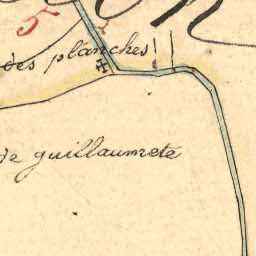 5
des planches
de guillaumete